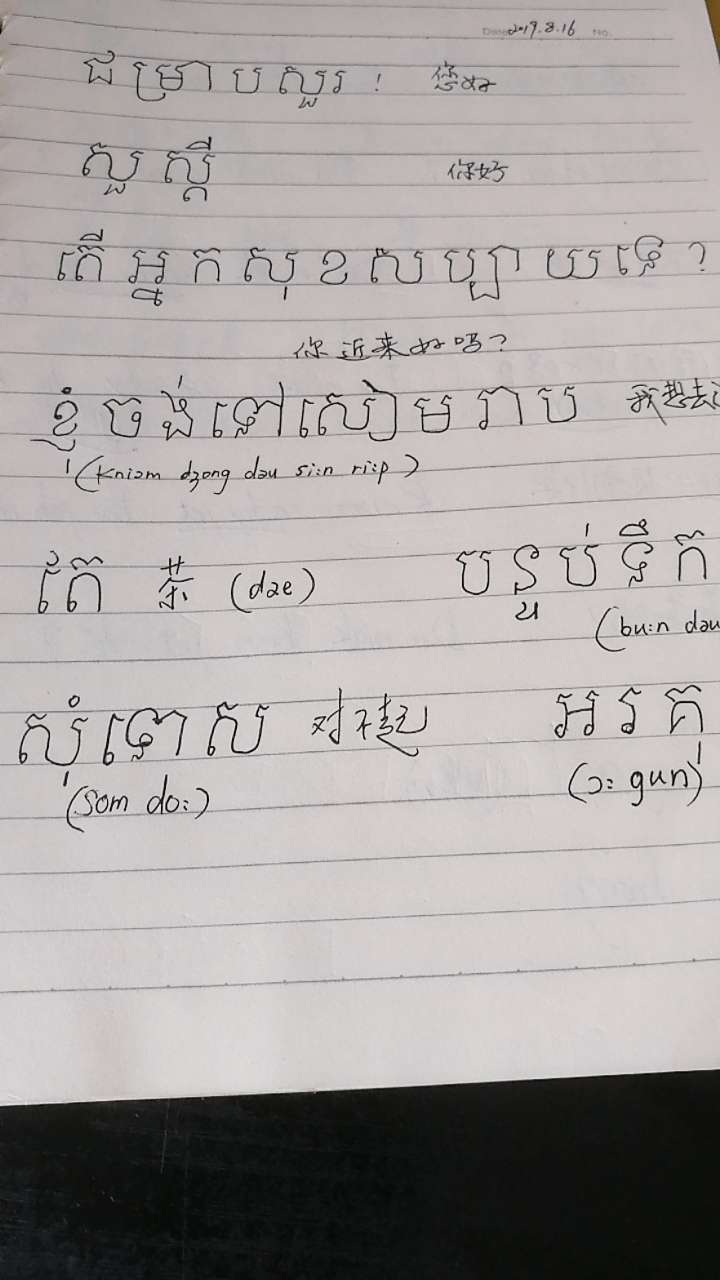 Date 2019.8.16 No.
ជម្រាបសួរ! 您好
សួស្តី 你好
តើអ្នកសុខសប្បាយទេ?
你近来好吗?
ខ្ញុំចង់ទៅសៀមរាប 我想去
(kniəm dʒong dəu si:n ri:p)
តែ 茶 (dae) បន្ទប់ទឹក
(bu:n dəu
សុំទោស 对不起 អរគុ
(som do:) (ɔ: gun)